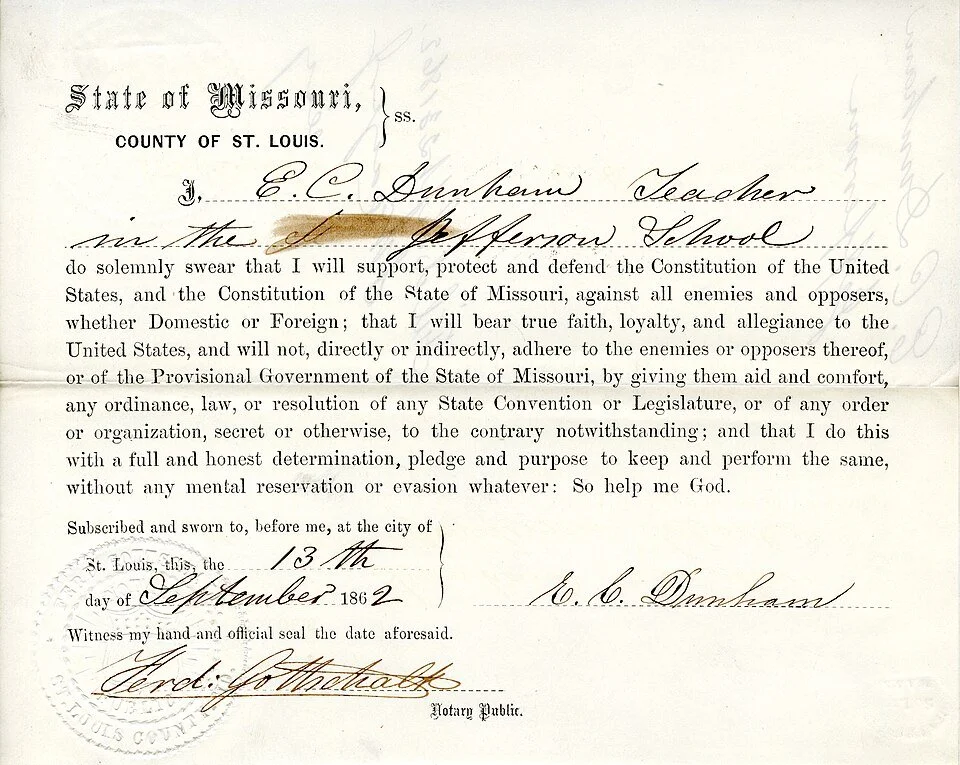 State of Missouri,
COUNTY OF ST. LOUIS. } ss.
I, E. C. Dunham Teacher
in the Jefferson School
do solemnly swear that I will support, protect and defend the Constitution of the United
States, and the Constitution of the State of Missouri, against all enemies and opposers,
whether Domestic or Foreign; that I will bear true faith, loyalty, and allegiance to the
United States, and will not, directly or indirectly, adhere to the enemies or opposers thereof,
or of the Provisional Government of the State of Missouri, by giving them aid and comfort,
any ordinance, law, or resolution of any State Convention or Legislature, or of any order
or organization, secret or otherwise, to the contrary notwithstanding; and that I do this
with a full and honest determination, pledge and purpose to keep and perform the same,
without any mental reservation or evasion whatever: So help me God.
Subscribed and sworn to, before me, at the city of
St. Louis, this, the 13th
day of September 1862
E. C. Dunham
Witness my hand and official seal the date aforesaid.
Ferd: Gottschalk
Notary Public.
PUBLIC
ST. LOUIS COUNTY